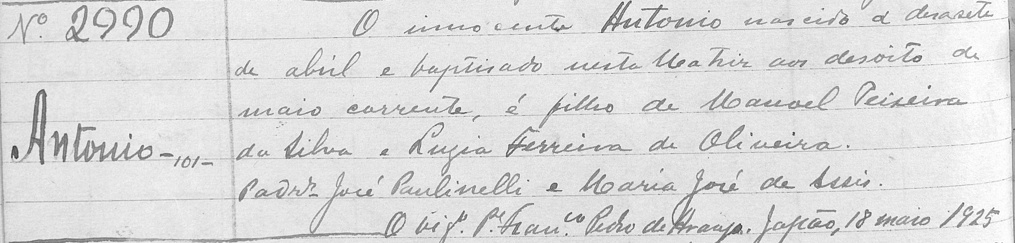 Nº 2990
O innocente Antonio nascido a desasete
de abril e baptisado nesta Matriz aos desoito de
maio corrente, é filho de Manoel Teixeira
da Silva e Luzia Ferreira de Oliveira.
Antonio -101-
Padr. José Paulinelli e Maria José de Assis.
O vigº. Pe. Franco. Pedro de Araujo. Japão, 18 maio 1925